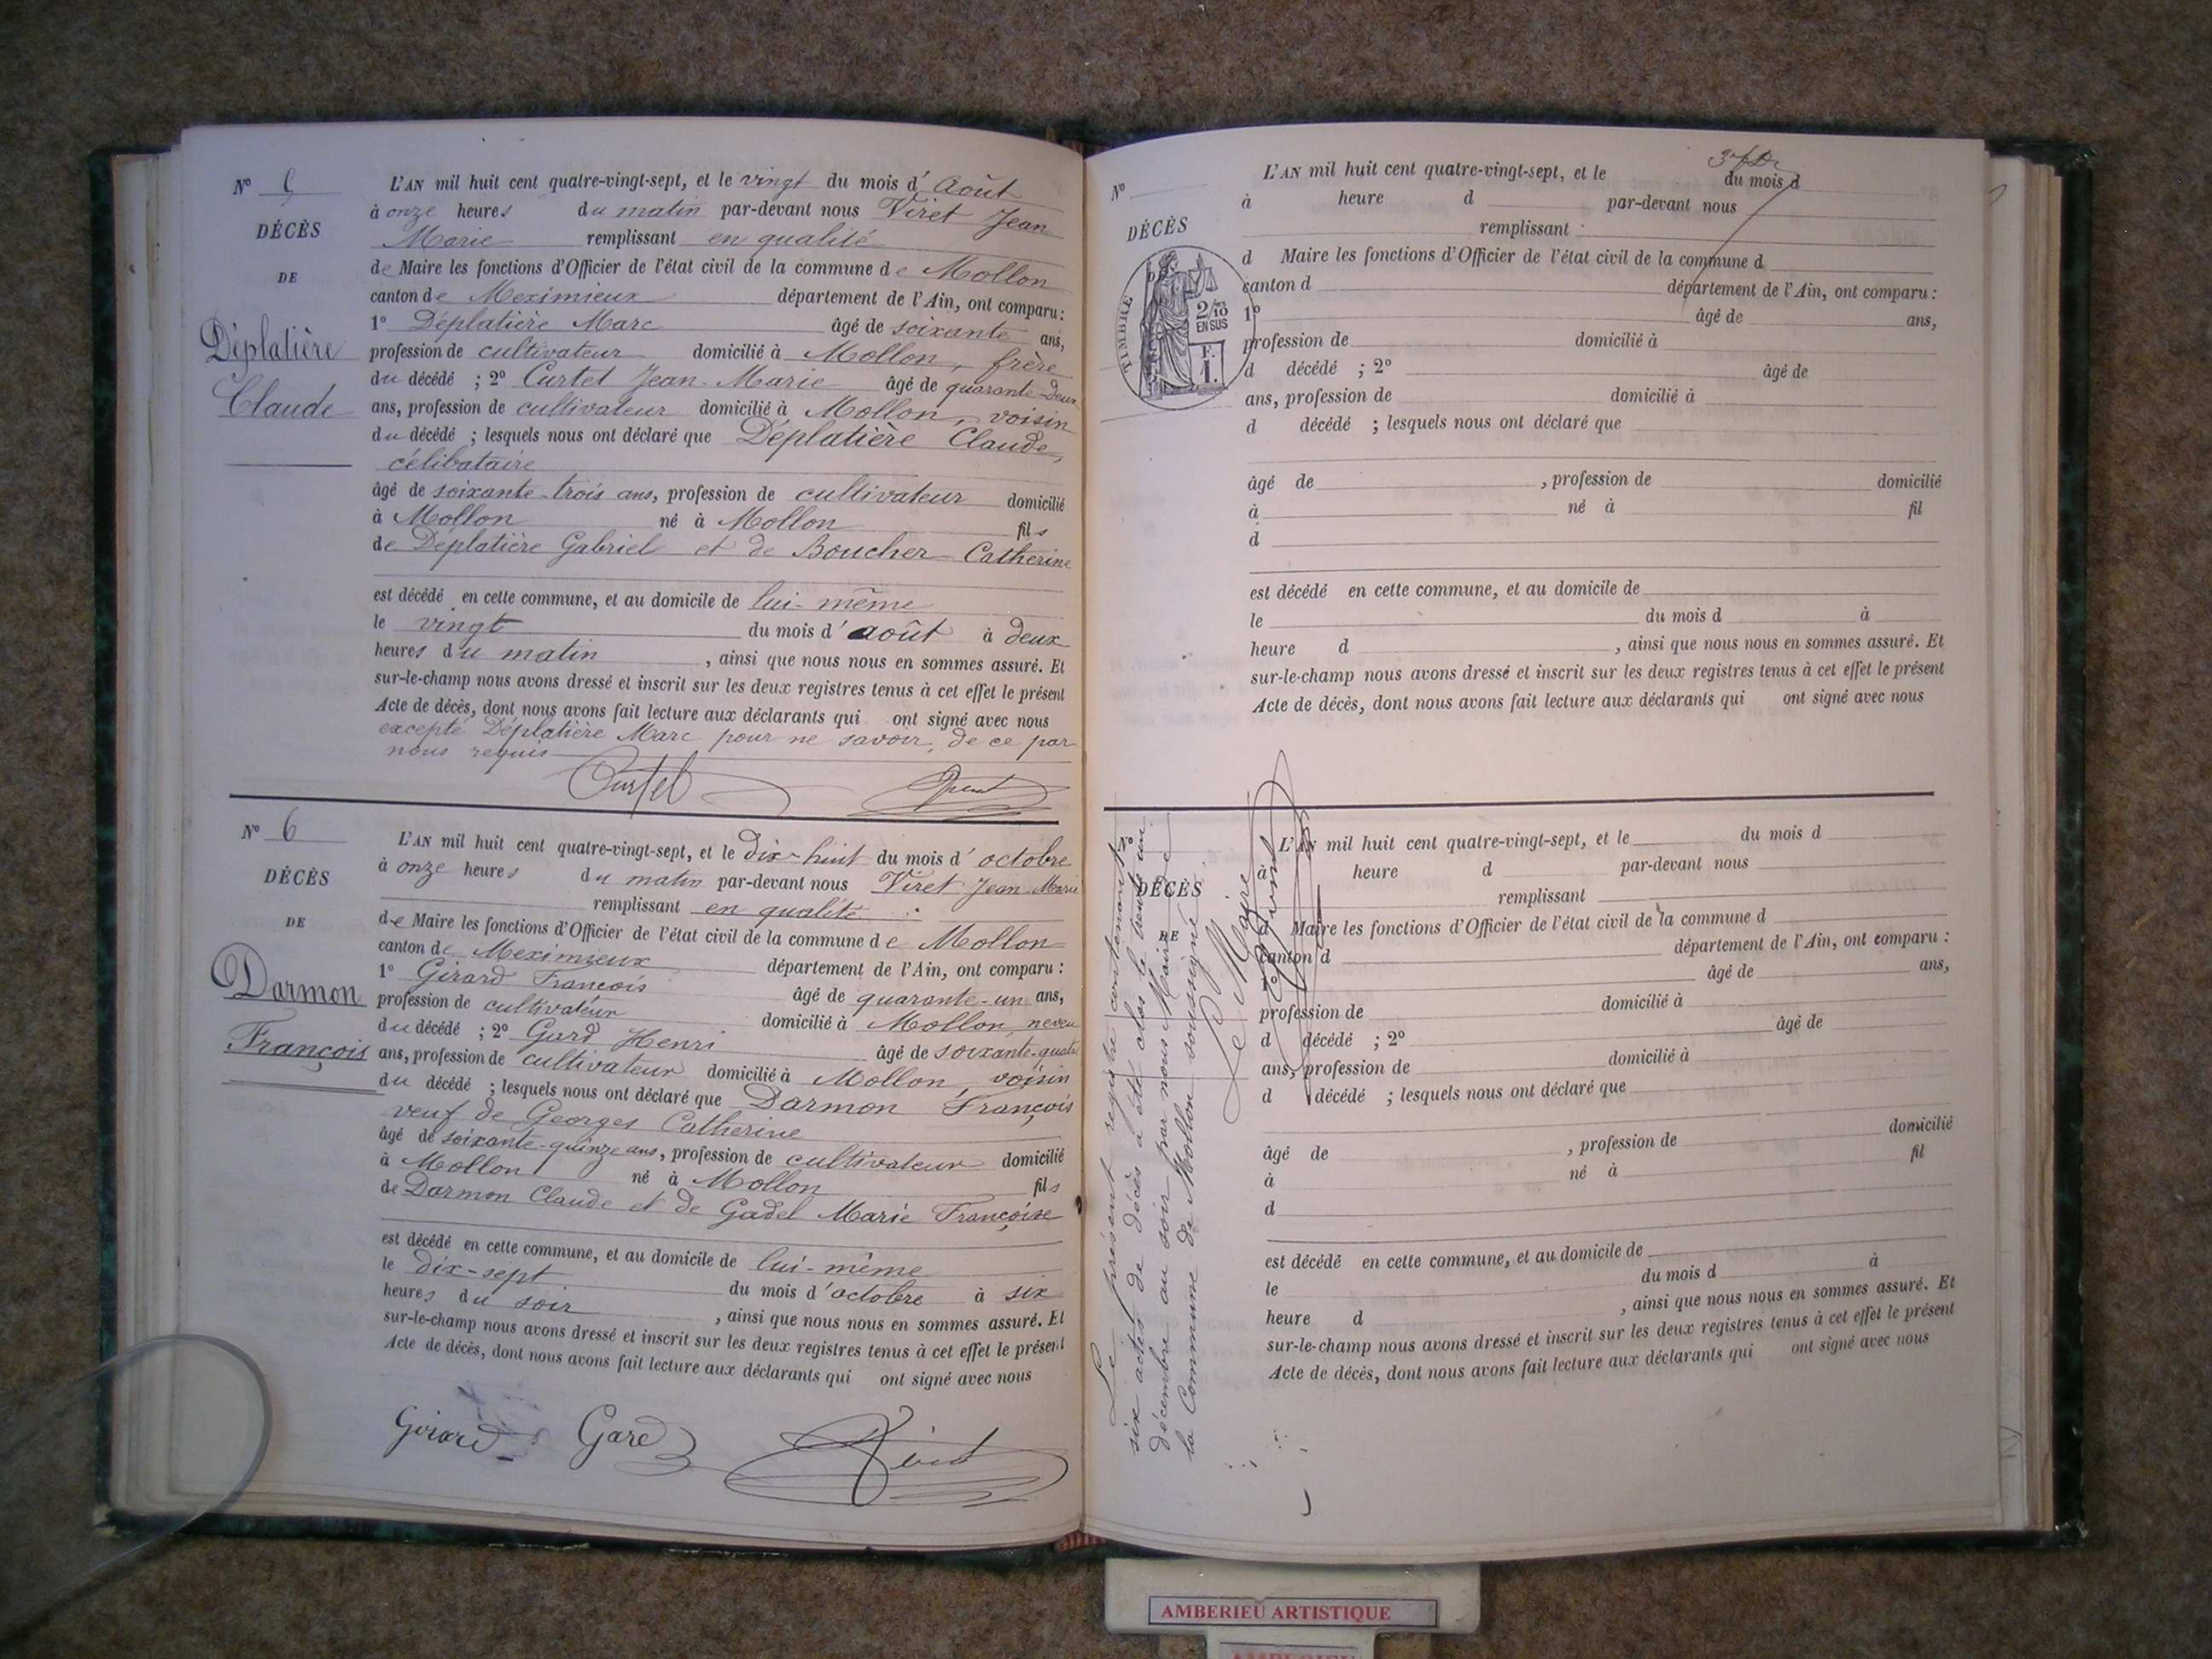 N° 5
DÉCÈS
DE
Déplatière
Claude
L'AN mil huit cent quatre-vingt-sept, et le vingt du mois d'Août
à onze heures du matin par-devant nous Viret Jean
Marie remplissant en qualité
de Maire les fonctions d'Officier de l'état civil de la commune de Mollon
canton de Meximieux département de l'Ain, ont comparu :
1° Déplatière Marc âgé de soixante ans,
profession de cultivateur domicilié à Mollon, frère
du décédé ; 2° Curtet Jean-Marie âgé de quarante-deux
ans, profession de cultivateur domicilié à Mollon, voisin
du décédé ; lesquels nous ont déclaré que Déplatière Claude,
célibataire
âgé de soixante-trois ans, profession de cultivateur domicilié
à Mollon né à Mollon fils
de Déplatière Gabriel et de Boucher Catherine
est décédé en cette commune, et au domicile de lui-même
le vingt du mois d'août à deux
heures du matin , ainsi que nous nous en sommes assuré. Et
sur-le-champ nous avons dressé et inscrit sur les deux registres tenus à cet effet le présent
Acte de décès, dont nous avons fait lecture aux déclarants qui ont signé avec nous
excepté Déplatière Marc pour ne savoir, de ce par
nous requis
Curtet
N° 6
DÉCÈS
DE
Darmon
François
L'AN mil huit cent quatre-vingt-sept, et le dix-huit du mois d'octobre
à onze heures du matin par-devant nous Viret Jean-Marie
remplissant en qualité
de Maire les fonctions d'Officier de l'état civil de la commune de Mollon
canton de Meximieux département de l'Ain, ont comparu :
1° Girard François âgé de quarante-un ans,
profession de cultivateur domicilié à Mollon, neveu
du décédé ; 2° Gard Henri âgé de soixante-quatre
ans, profession de cultivateur domicilié à Mollon, voisin
du décédé ; lesquels nous ont déclaré que Darmon François
veuf de Georges Catherine
âgé de soixante-quinze ans, profession de cultivateur domicilié
à Mollon né à Mollon fils
de Darmon Claude et de Gadel Marie Françoise
est décédé en cette commune, et au domicile de lui-même
le dix-sept du mois d'octobre à six
heures du soir , ainsi que nous nous en sommes assuré. Et
sur-le-champ nous avons dressé et inscrit sur les deux registres tenus à cet effet le présent
Acte de décès, dont nous avons fait lecture aux déclarants qui ont signé avec nous
Girard Gard Viret
N°
DÉCÈS
DE
TIMBRE
2/10
EN SUS
F.
1.
L'AN mil huit cent quatre-vingt-sept, et le du mois d
à heure d par-devant nous
remplissant
d Maire les fonctions d'Officier de l'état civil de la commune d
canton d département de l'Ain, ont comparu :
1° âgé de ans,
profession de domicilié à
d décédé ; 2° âgé de
ans, profession de domicilié à
d décédé ; lesquels nous ont déclaré que
âgé de , profession de domicilié
à né à fil
d
est décédé en cette commune, et au domicile de
le du mois d à
heure d , ainsi que nous nous en sommes assuré. Et
sur-le-champ nous avons dressé et inscrit sur les deux registres tenus à cet effet le présent
Acte de décès, dont nous avons fait lecture aux déclarants qui ont signé avec nous
N°
DÉCÈS
DE
L'AN mil huit cent quatre-vingt-sept, et le du mois d
à heure d par-devant nous
remplissant
Maire les fonctions d'Officier de l'état civil de la commune d
canton d département de l'Ain, ont comparu :
âgé de ans,
profession de domicilié à
d décédé ; 2° âgé de
ans, profession de domicilié à
d décédé ; lesquels nous ont déclaré que
âgé de , profession de domicilié
à né à fil
d
est décédé en cette commune, et au domicile de
le du mois d à
heure d , ainsi que nous nous en sommes assuré. Et
sur-le-champ nous avons dressé et inscrit sur les deux registres tenus à cet effet le présent
Acte de décès, dont nous avons fait lecture aux déclarants qui ont signé avec nous
Le présent registre contenant
six actes de décès a été clos le trente un
décembre au soir par nous Maire de
la Commune de Mollon soussigné,
Le Maire
AMBERIEU ARTISTIQUE
AMBERIEU